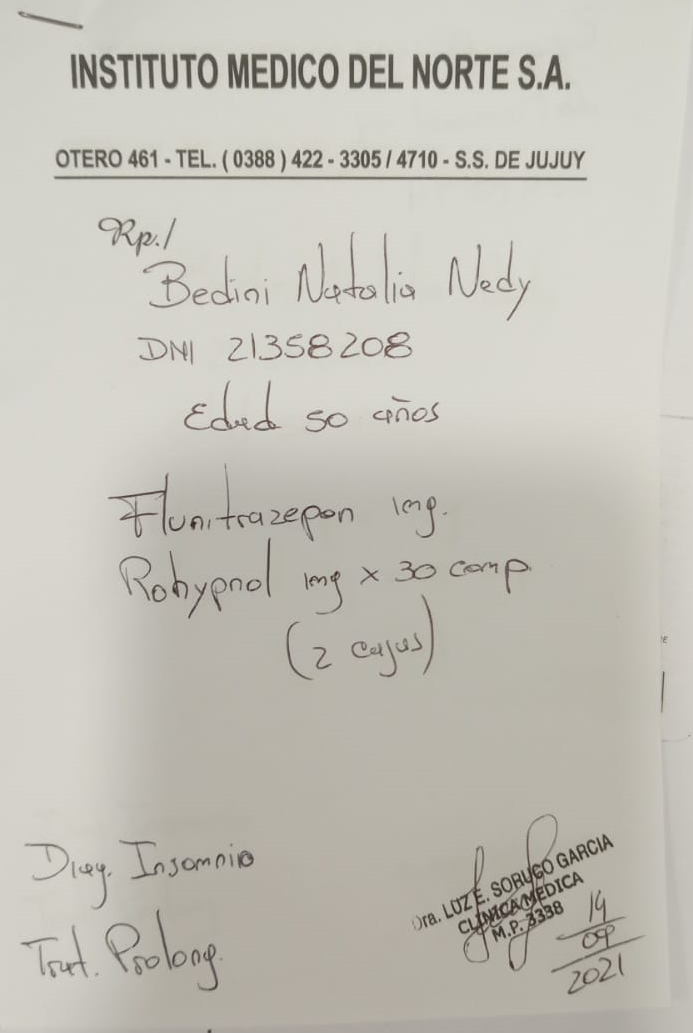 INSTITUTO MEDICO DEL NORTE S.A.
OTERO 461 - TEL. ( 0388 ) 422 - 3305 / 4710 - S.S. DE JUJUY
Rp./
Bedini Natalia Nedy
DNI 21358208
Edad 50 años
Flunitrazepan 1mg.
Rohypnol 1mg x 30 comp.
(2 cajas)
Diag. Insomnio
Trat. Prolong.
Dra. LUZ E. SORUCO GARCIA
CLINICA MEDICA
M.P. 3338
14
09
2021